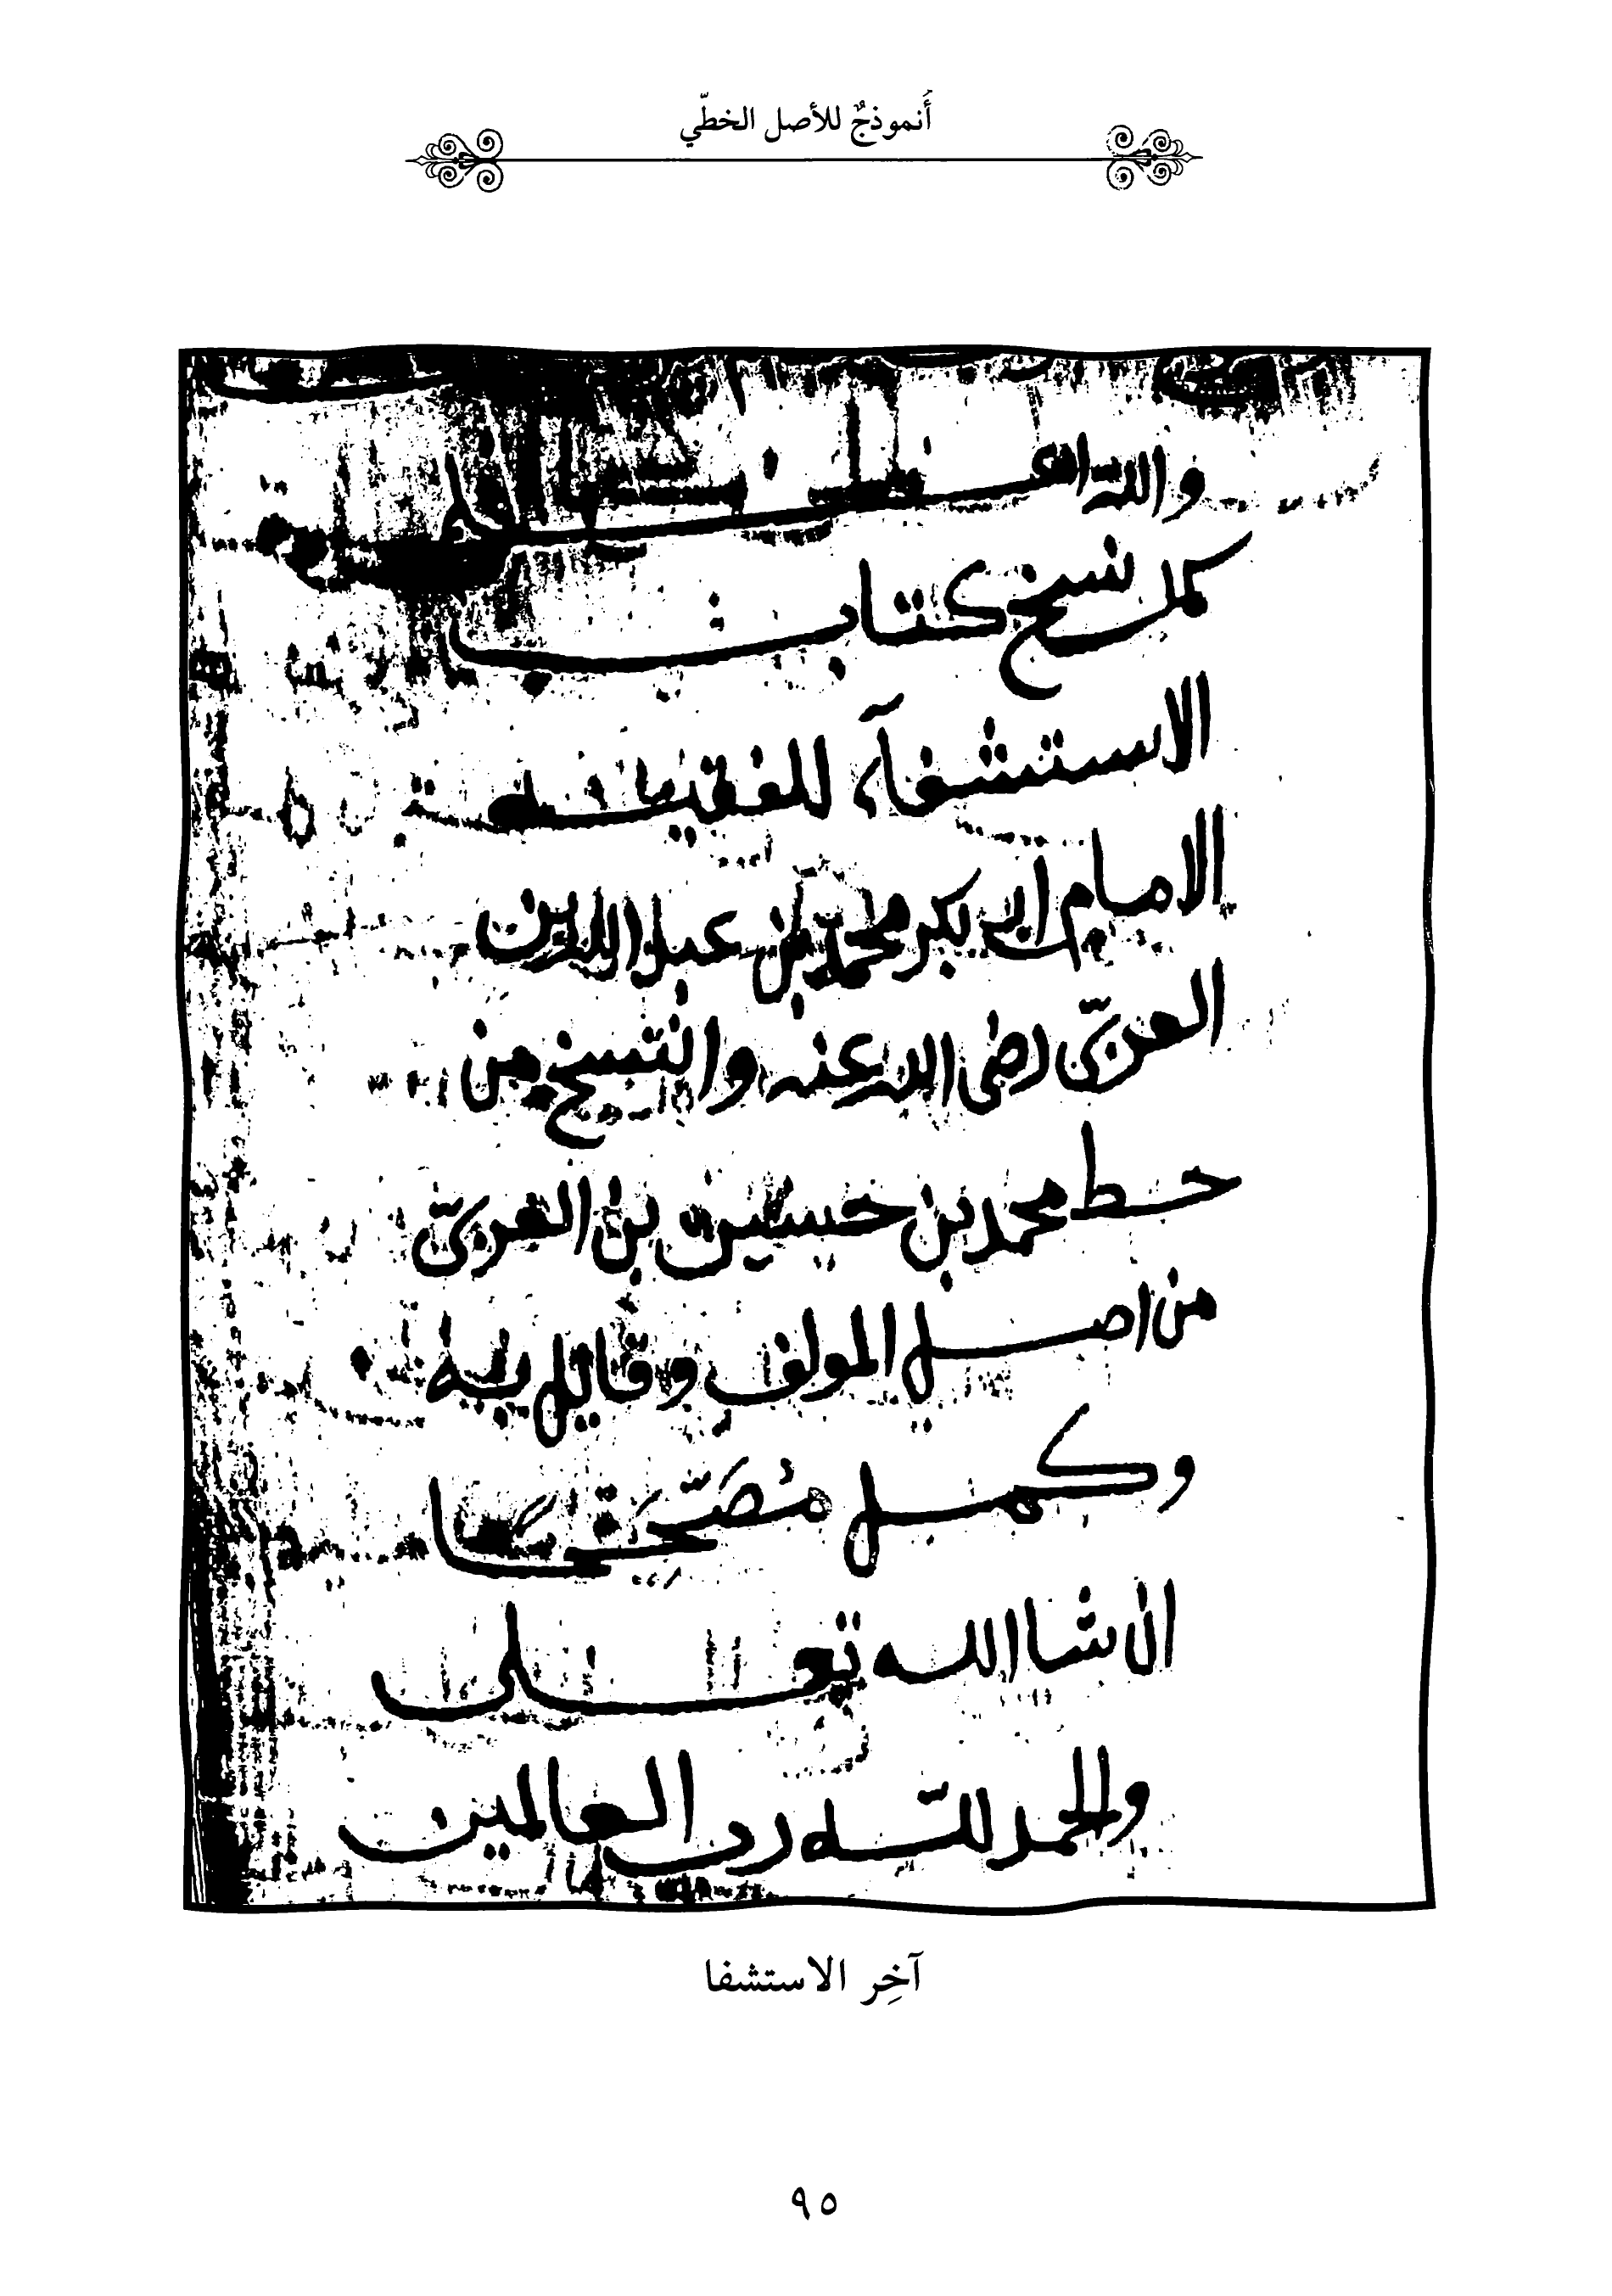 أَنموذجٌ للأصل الخطّي
والله
كمل نسخ كتاب
الاستشفآء للفقيه
الامام ابي بكر محمد بن عبد الله بن
العربيّ رضي الله عنه وانتسخ من
خط محمد بن حسين بن العربيّ
من اصل المولف وقابل به
وكمل مُصَحَّحًا
ان شا الله تعلى
والحمد للّه رب العالمين
آخِر الاستشفا
٩٥